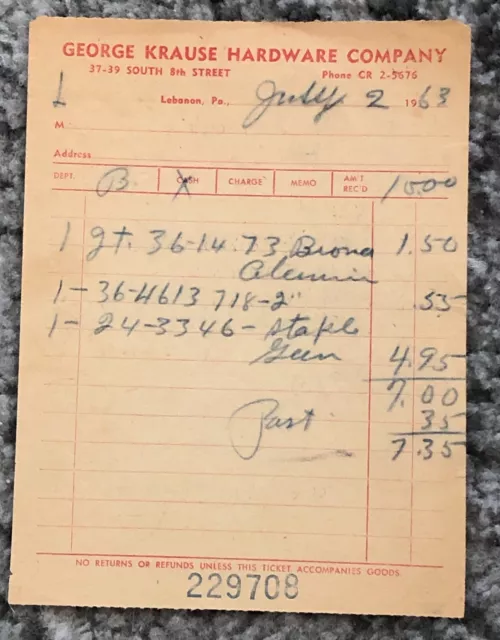 GEORGE KRAUSE HARDWARE COMPANY
37-39 SOUTH 8th STREET Phone CR 2-5676
Lebanon, Pa., July 2 1963
M
Address
DEPT. B. CASH CHARGE MEMO AM'T REC'D 1000
1 qt. 36-14 73 1.50
1-36-4613 718-2" .55
1-24-3346- Staple
Gun 4.95
7.00
35
7.35
NO RETURNS OR REFUNDS UNLESS THIS TICKET ACCOMPANIES GOODS.
229708